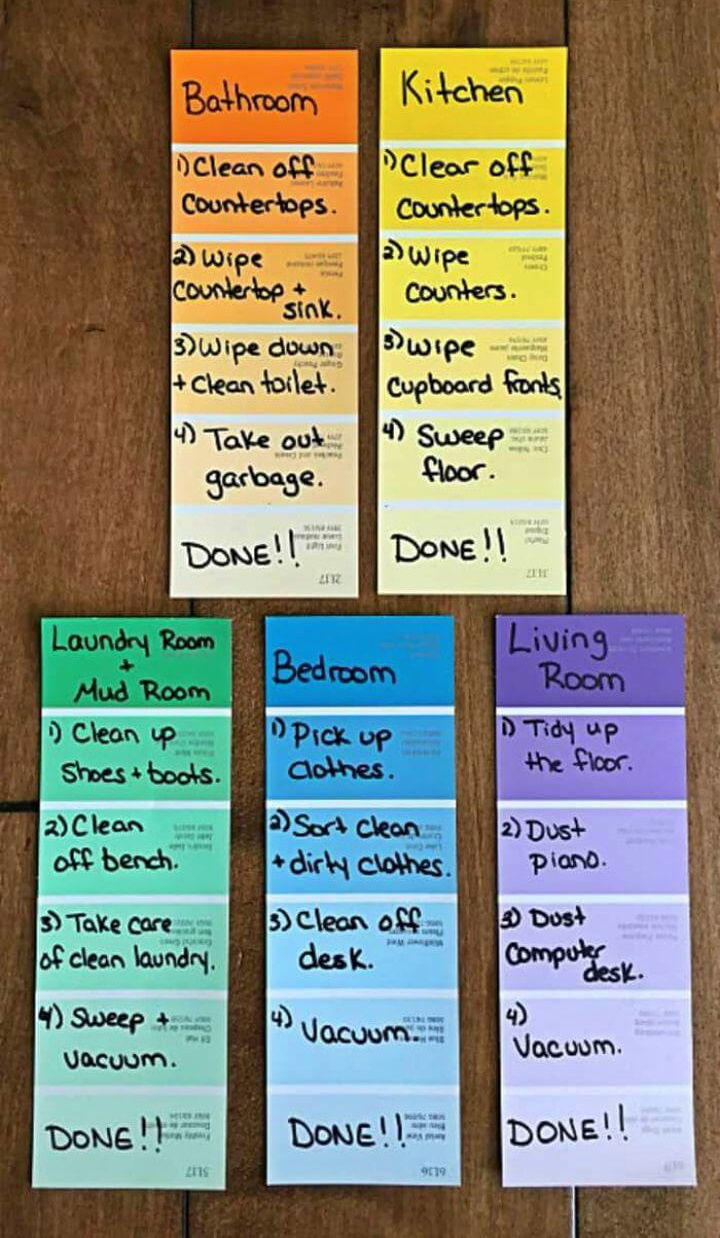 Bathroom
1) Clean off
countertops.
2) Wipe
countertop +
sink.
3) Wipe down
+ Clean toilet.
4) Take out
garbage.
DONE!!
2L17
Kitchen
1) Clear off
countertops.
2) Wipe
counters.
3) Wipe
cupboard fronts
4) Sweep
floor.
DONE!!
3L17
Laundry Room
+
Mud Room
1) Clean up
Shoes + boots.
2) Clean
off bench.
3) Take care
of clean laundry.
4) Sweep +
vacuum.
DONE!!
5L17
Bedroom
1) Pick up
clothes.
2) Sort clean
+ dirty clothes.
3) Clean off
desk.
4) Vacuum.
DONE!!
6L16
Living
Room
1) Tidy up
the floor.
2) Dust
piano.
3) Dust
Computer
desk.
4)
Vacuum.
DONE!!